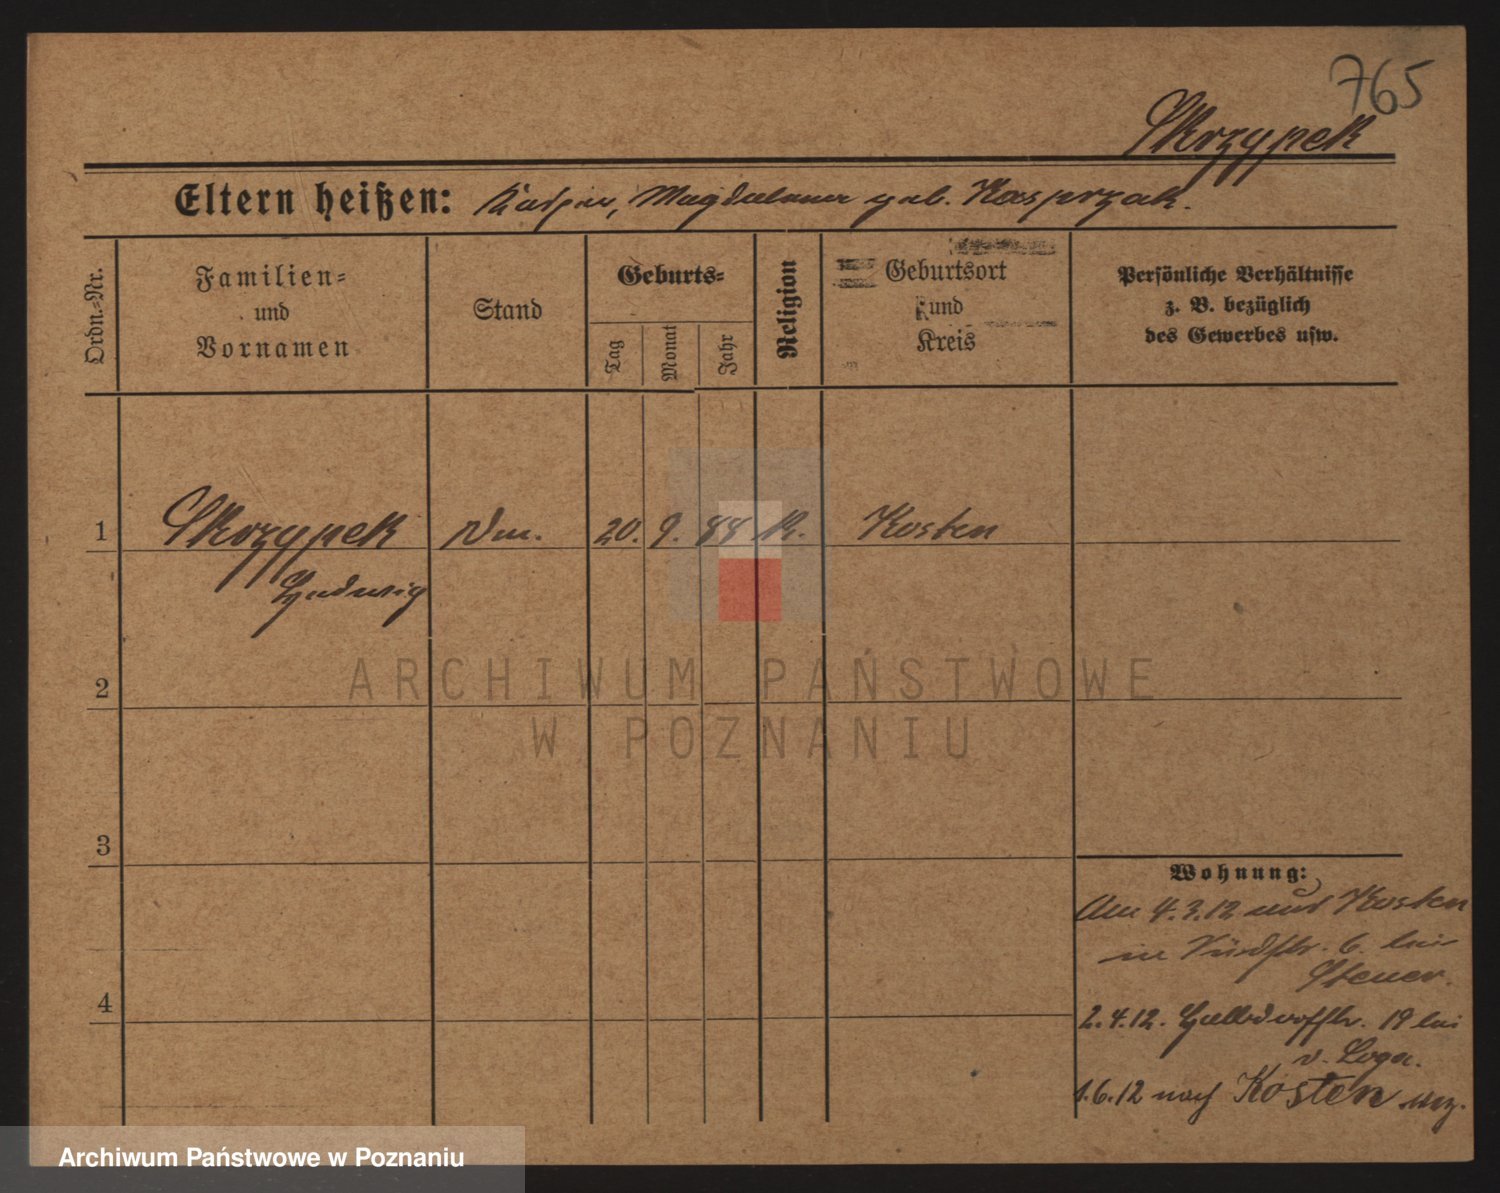 765
Skrzypek
Eltern heißen: Kaspar, Magdalena geb. Kasprzak.
Ordn.-Nr.
Familien-
und
Vornamen
Stand
Geburts-
Tag
Monat
Jahr
Religion
Geburtsort
und
Kreis
Persönliche Verhältnisse
z. B. bezüglich
des Gewerbes usw.
1 Skrzypek 20. 9. 88 K. Kosten
Ludwig
2
ARCHIWUM PAŃSTWOWE
W POZNANIU
3
Wohnung:
Am 4.3.12 aus Kosten
in 6. bei
Steuer.
4
2.4.12. Halbdorfstr. 19 bei
v. Loga.
1.6.12 nach Kosten
Archiwum Państwowe w Poznaniu